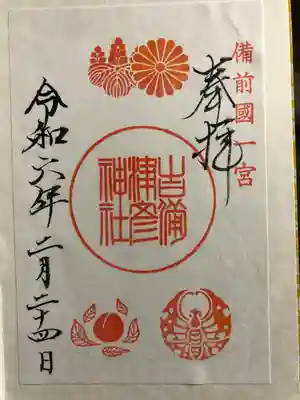 備前國一宮
奉拝
吉備
津彦
神社
令和六年二月二十四日